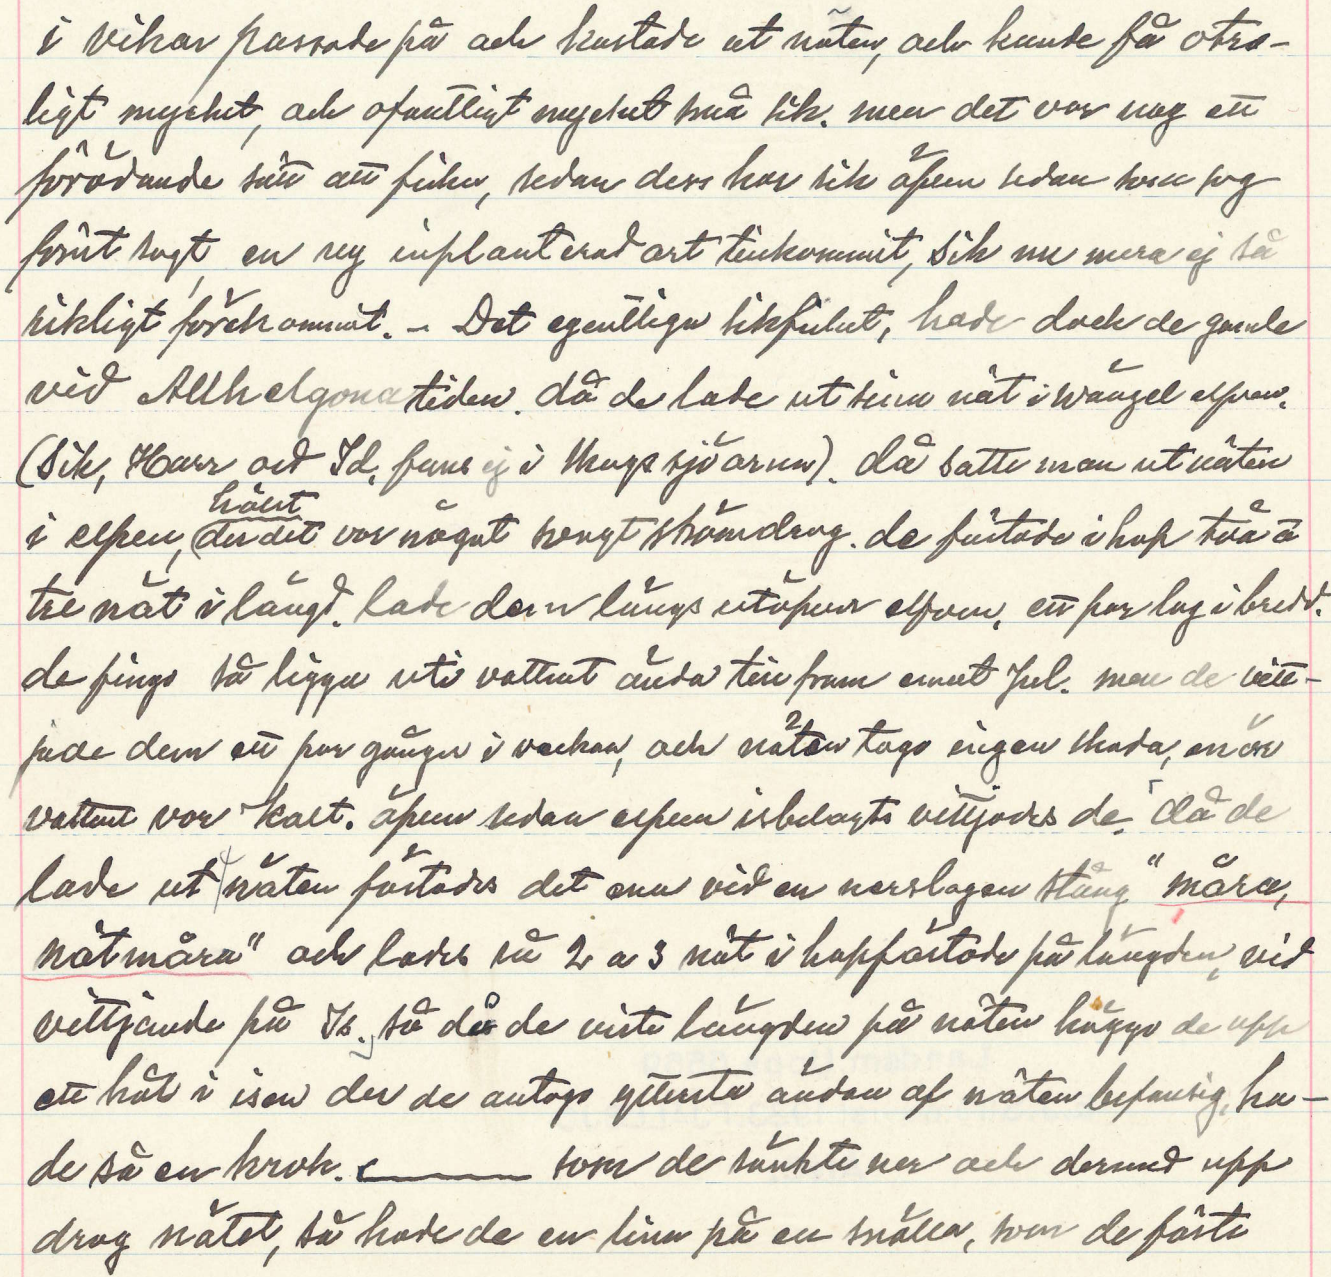 i vikar passade på och kastade ut näten, och kunde få otro-
ligt mycket, och ofantligt mycket små sik. men det var nog ett
förödande sätt att fiska, sedan dess har sik äfven sedan som jag
förut sagt, en ny inplanterad art tillkommit, sik nu mera ej så
rikligt förekommit. – Det egentliga sikfisket, hade dock de gamle
vid Allhelgona tiden. då de lade ut sina nät i Wängel elfven.
(Sik, Harr och Id, fans ej i Skogssjöarna). då satte man ut näten
i elfven, hälst der det var något svagt strömdrag. de fästade i hop två à
tre nät i längd. lade dem längs utåfver elfven, ett par lag i bredd.
de fingo så ligga uti vattnet ända till fram emot Jul. men de vitt-
jade dem ett par gånger i veckan, och näten togo ingen skada,
vattnet var kallt. äfven sedan elfven isbelagts vittjades de. då de
lade ut näten fästades det ena vid en nerslagen stång "måra,
nätmåra" och lades så 2 a 3 nät i hopfästade på längden, vid
vittjande på Is, så då de viste längden på näten höggo de upp
ett hål i isen der de antogo yttersta ändan af näten befansig, ha-
de så en krok. som de sänkte ner och dermed upp
drog nätet, så hade de en lina på en snälla, som de fäste